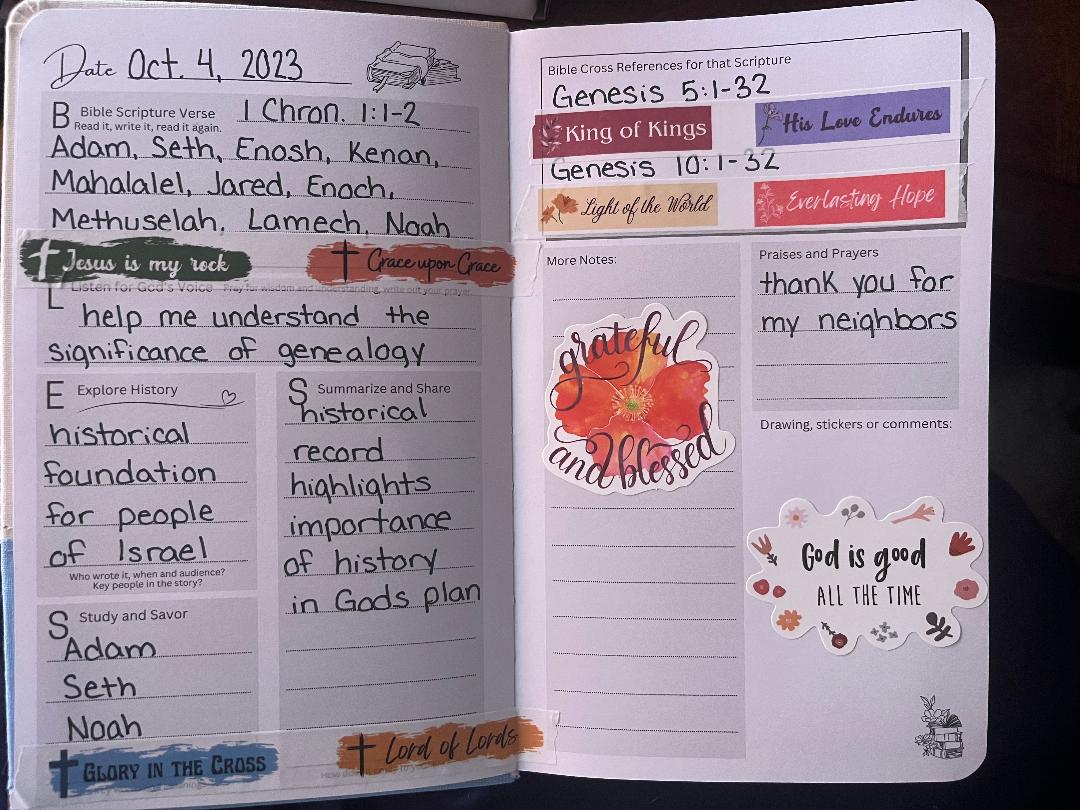 Date Oct. 4, 2023
B Bible Scripture Verse 1 Chron. 1:1-2
Read it, write it, read it again.
Adam, Seth, Enosh, Kenan,
Mahalalel, Jared, Enoch,
Methuselah, Lamech, Noah
Jesus is my rock
Grace upon Grace
L Listen for God's Voice Pray for wisdom and understanding, write out your prayer.
help me understand the
significance of genealogy
E Explore History
historical
foundation
for people
of Israel
Who wrote it, when and audience?
Key people in the story?
S Study and Savor
Adam
Seth
Noah
S Summarize and Share
historical
record
highlights
importance
of history
in Gods plan
Glory in the Cross
Lord of Lords
Bible Cross References for that Scripture
Genesis 5:1-32
King of Kings
His Love Endures
Genesis 10:1-32
Light of the World
Everlasting Hope
More Notes:
grateful
and blessed
Praises and Prayers
thank you for
my neighbors
Drawing, stickers or comments:
God is good
ALL THE TIME